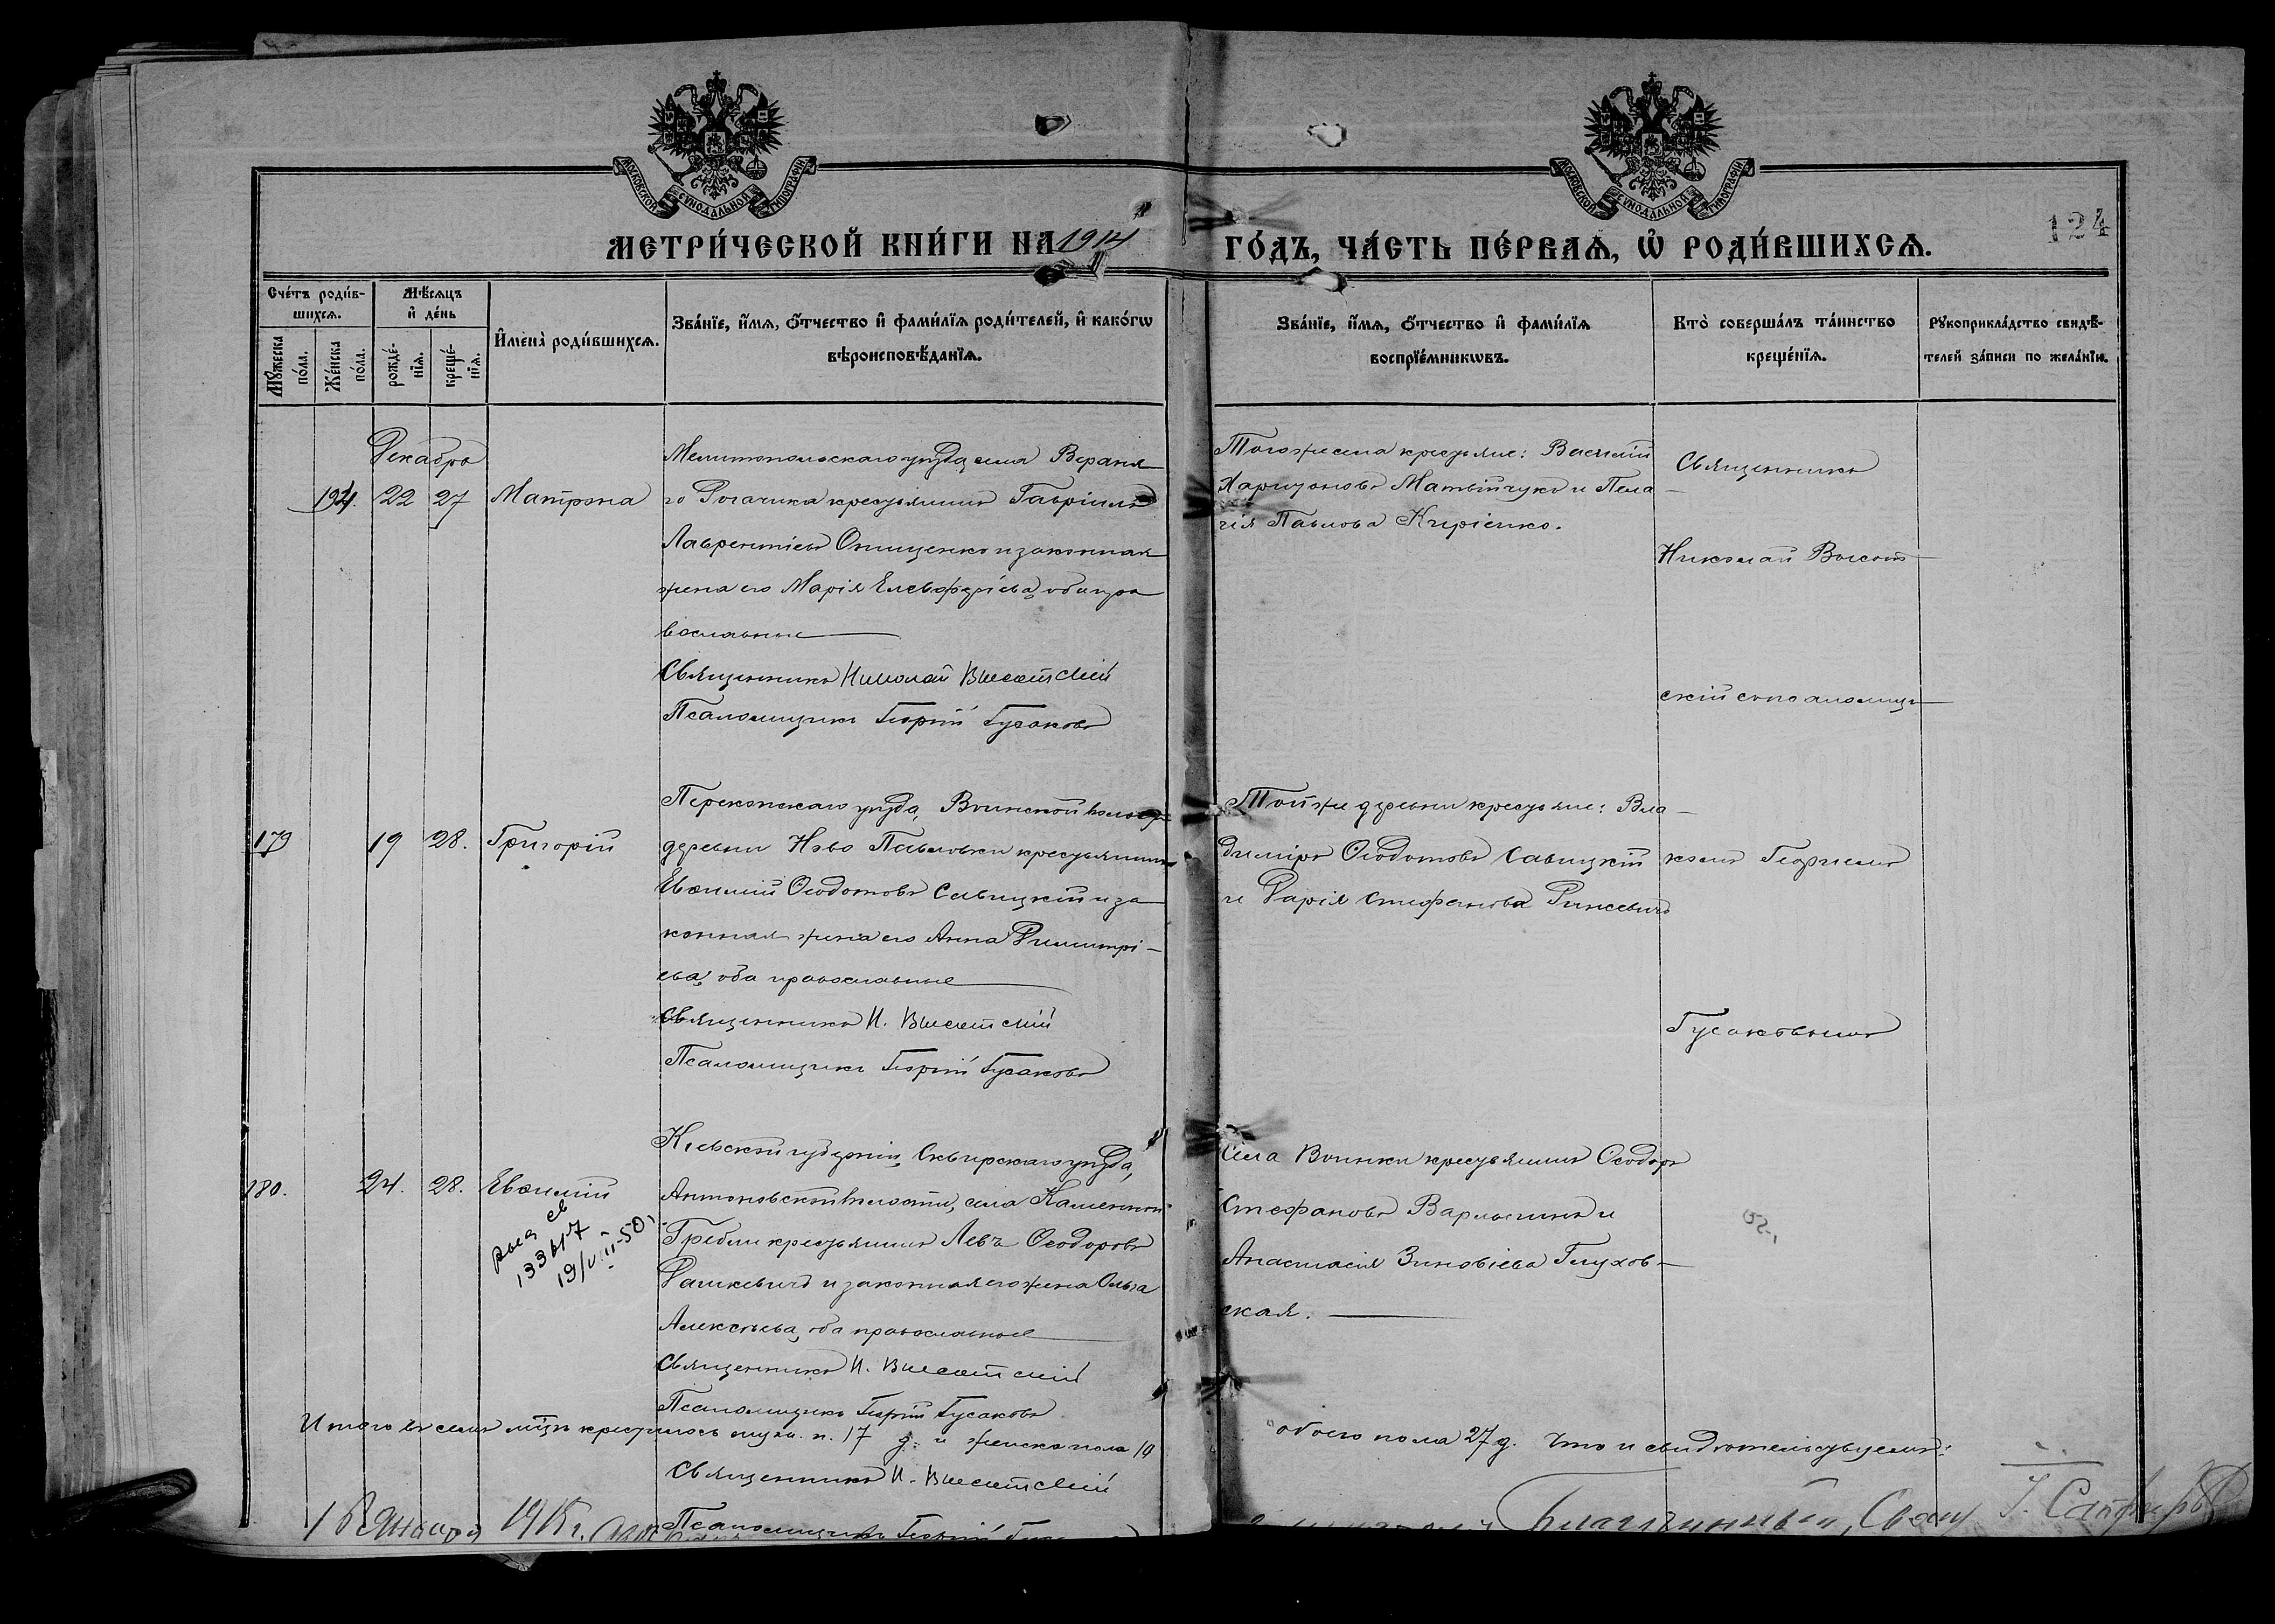 МОСКОВСКОЙ СѴНОДАЛЬНОЙ ТИПОГРАФІИ
МОСКОВСКОЙ СѴНОДАЛЬНОЙ ТИПОГРАФІИ
124
МЕТРИ́ЧЕСКОЙ КНИ́ГИ НА 1914 ГО́ДЪ, ЧА́СТЬ ПЕ́РВАѦ, Ѡ҆ РОДИ́ВШИХСѦ.
Сче́тъ роди́в-
шихсѧ.
Мꙋжеска по́ла.
Же́нска по́ла.
Мѣ́сѧцъ
и҆ де́нь
рожде́-
нїѧ.
креще́-
нїѧ.
И҆мена̀ роди́вшихсѧ.
Зва́нїе, и҆́мѧ, ѻ҆́тчество и҆ фами́лїѧ роди́телей, и҆ како́гѡ
вѣроисповѣ́данїѧ.
Зва́нїе, и҆́мѧ, ѻ҆́тчество и҆ фами́лїѧ
воспрїе́мникѡвъ.
Кто̀ соверша́лъ та́инство
креще́нїѧ.
Рꙋкоприкла́дство свидѣ́-
телей за́писи по жела́нїю.
Декабрь
22 27 Матрона
Мелитопольскаго уѣзда села Верхня
го Рогачика крестьянинъ Гавріилъ
Лаврентіевъ Онищенко и законная
жена его Марія Елевферіева, оба пра
вославные
Священникъ Николай Высотскій
Псаломщикъ Георгій Гусаковъ
Тогоже села крестьяне: Василій
Харитоновъ Матвійчукъ и Пела-
гія Павлова Кирієнко.
Священникъ
Николай Высот
скій съ псаломщи
179 19 28. Григорій
Перекопскаго уѣзда, Воинской волости
деревни Ново Павловки крестьянинъ
Евѳимій Ѳеодотовъ Савицкій и за
конная жена его Анна Димитрі-
ева, оба православные
Священникъ Н. Высотскій
Псаломщикъ Георгій Гусаковъ
Той же деревни крестьяне: Вла-
диміръ Ѳеодотовъ Савицкій
и Дарія Стефанова
комъ Георгіемъ
Гусаковымъ
180. 24. 28. Евѳимій
19/VII-50
Кіевской губерніи, Сквирскаго уѣзда,
Антоновской волости, села Каменной
Гребли крестьянинъ Левъ Ѳеодоровъ
Дашкевичъ и законная его жена Ольга
Алексѣева, оба православные
Священникъ Н. Высотскій
Псаломщикъ Георгій Гусаковъ
Села Воинки крестьянинъ Ѳеодоръ
Стефановъ Варлыгинъ и
Анастасія Зиновіева Глухов-
ская.
Итого въ семъ мцѣ крестилось муж. п. 17 д. и женска пола 10 обоего пола 27 д. Что и свидѣтельствуемъ:
Священникъ Н. Высотскій
Псаломщикъ Георгій
Января 1915 г.
Благочинный, Свящ. І. Сапфировъ